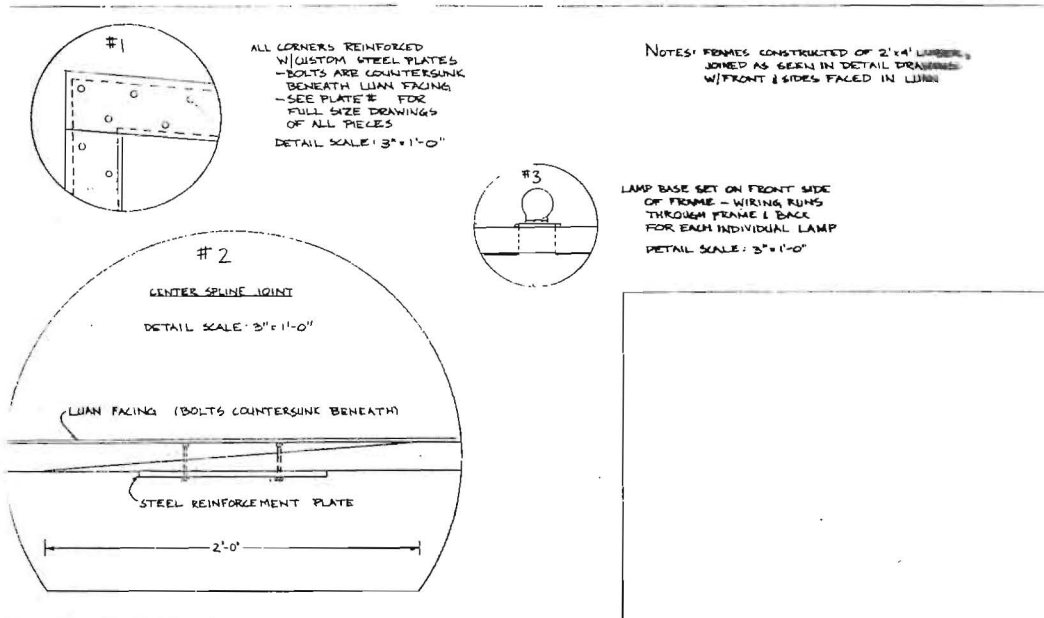 #1
ALL CORNERS REINFORCED
W/CUSTOM STEEL PLATES
-BOLTS ARE COUNTERSUNK
BENEATH LUAN FACING
-SEE PLATE # FOR
FULL SIZE DRAWINGS
OF ALL PIECES
DETAIL SCALE: 3"=1'-0"
NOTES: FRAMES CONSTRUCTED OF 2"x4" LUMBER,
JOINED AS SEEN IN DETAIL DRAWINGS
W/FRONT & SIDES FACED IN LUAN
#3
LAMP BASE SET ON FRONT SIDE
OF FRAME - WIRING RUNS
THROUGH FRAME & BACK
FOR EACH INDIVIDUAL LAMP
DETAIL SCALE: 3"=1'-0"
#2
CENTER SPLINE JOINT
DETAIL SCALE: 3"=1'-0"
LUAN FACING (BOLTS COUNTERSUNK BENEATH)
STEEL REINFORCEMENT PLATE
2'-0"